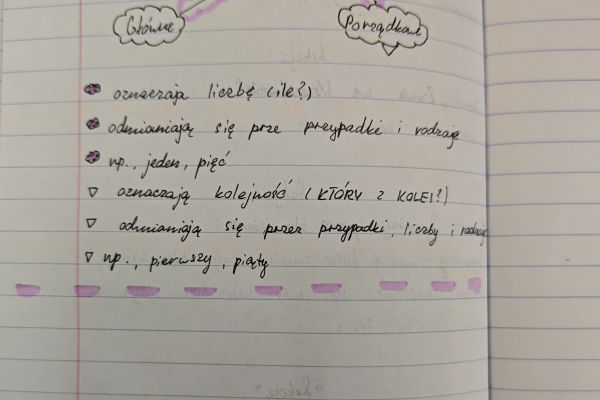 Główne
Porządkowe
oznaczają liczbę (ile?)
odmianiają się prze przypadki i rodzaje
np., jeden, pięć
oznaczają kolejność (KTÓRY Z KOLEI?)
odmianiają się przez przypadki, liczby i rodzaje
np., pierwszy, piąty